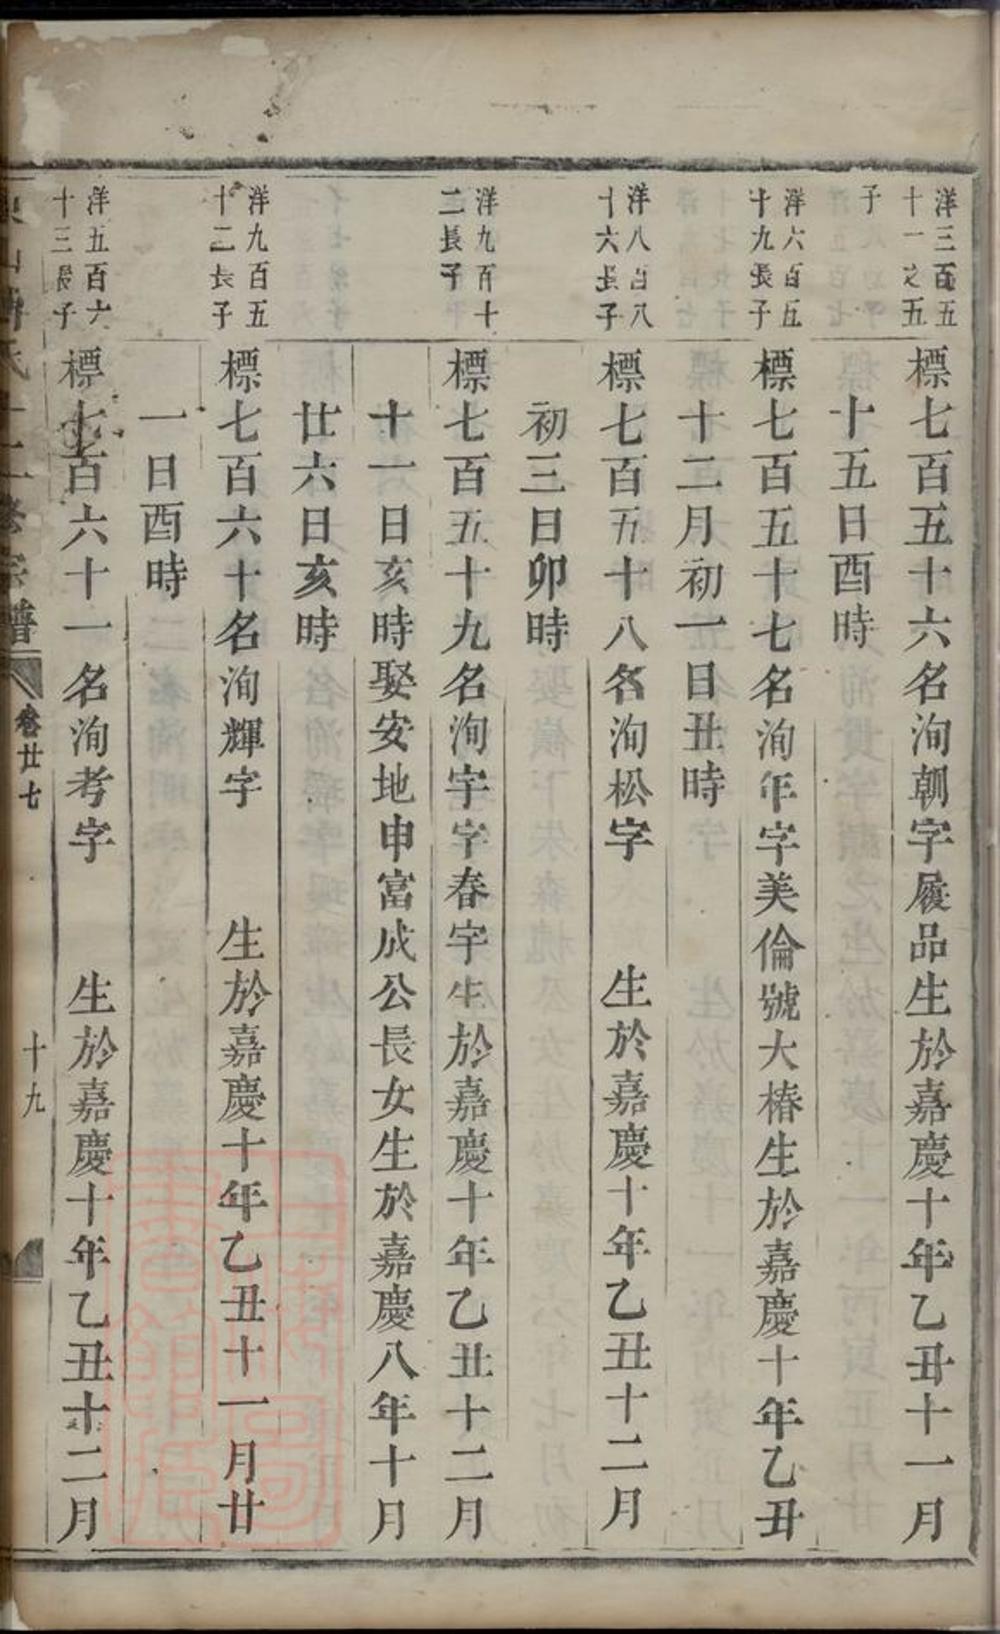 洋三百五
十一之五
子
標七百五十六名洵朝字履品生於嘉慶十年乙丑十一月
十五日酉時
洋六百五
十九長子
標七百五十七名洵年字美倫號大椿生於嘉慶十年乙丑
十二月初一日丑時
洋八百八
十六長子
標七百五十八名洵松字生於嘉慶十年乙丑十二月
初三日卯時
洋九百十
二長子
標七百五十九名洵宇字春宇生於嘉慶十年乙丑十二月
十一日亥時娶安地申富成公長女生於嘉慶八年十月
廿六日亥時
洋九百五
十二長子
標七百六十名洵輝字生於嘉慶十年乙丑十一月廿
一日酉時
洋五百六
十三長子
標七百六十一名洵考字生於嘉慶十年乙丑十二月
宗譜
卷廿七
十九